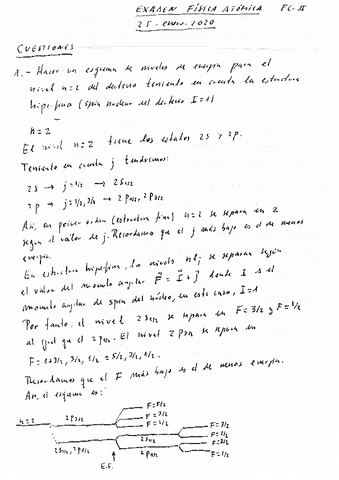 EXAMEN FÍSICA ATÓMICA FC-II
25-enero-2020
CUESTIONES
1.- Hacer un esquema de niveles de energía para el
nivel n=2 del deuterio teniendo en cuenta la estructura
hiperfina (spin nuclear del deuterio I=1)
n=2
El nivel n=2 tiene los estados 2s y 2p.
Teniendo en cuenta j tendremos:
2s → j=1/2 → 2S1/2
2p → j=1/2,3/2 → 2P1/2, 2P3/2
Así, en primer orden (estructura fina) n=2 se separa en 2
según el valor de j. Recordamos que el j más bajo es el de menos
energía.
En estructura hiperfina, los niveles nlj se separan según
el valor del momento angular F = I + j donde I es el
momento angular de spin del núcleo, en este caso, I=1
Por tanto, el nivel 2S1/2 se separa en F=3/2 y F=1/2
al igual que el 2P1/2. El nivel 2P3/2 se separa en
F = 1+3/2, 3/2, 1/2 = 5/2, 3/2, 1/2.
Recordamos que el F más bajo es el de menos energía.
Así, el esquema es:
F=5/2
n=2 2P3/2 F=3/2
F=1/2
F=3/2
2S1/2 F=1/2
2S1/2, 2P1/2 F=3/2
2P1/2 F=1/2
E.F.